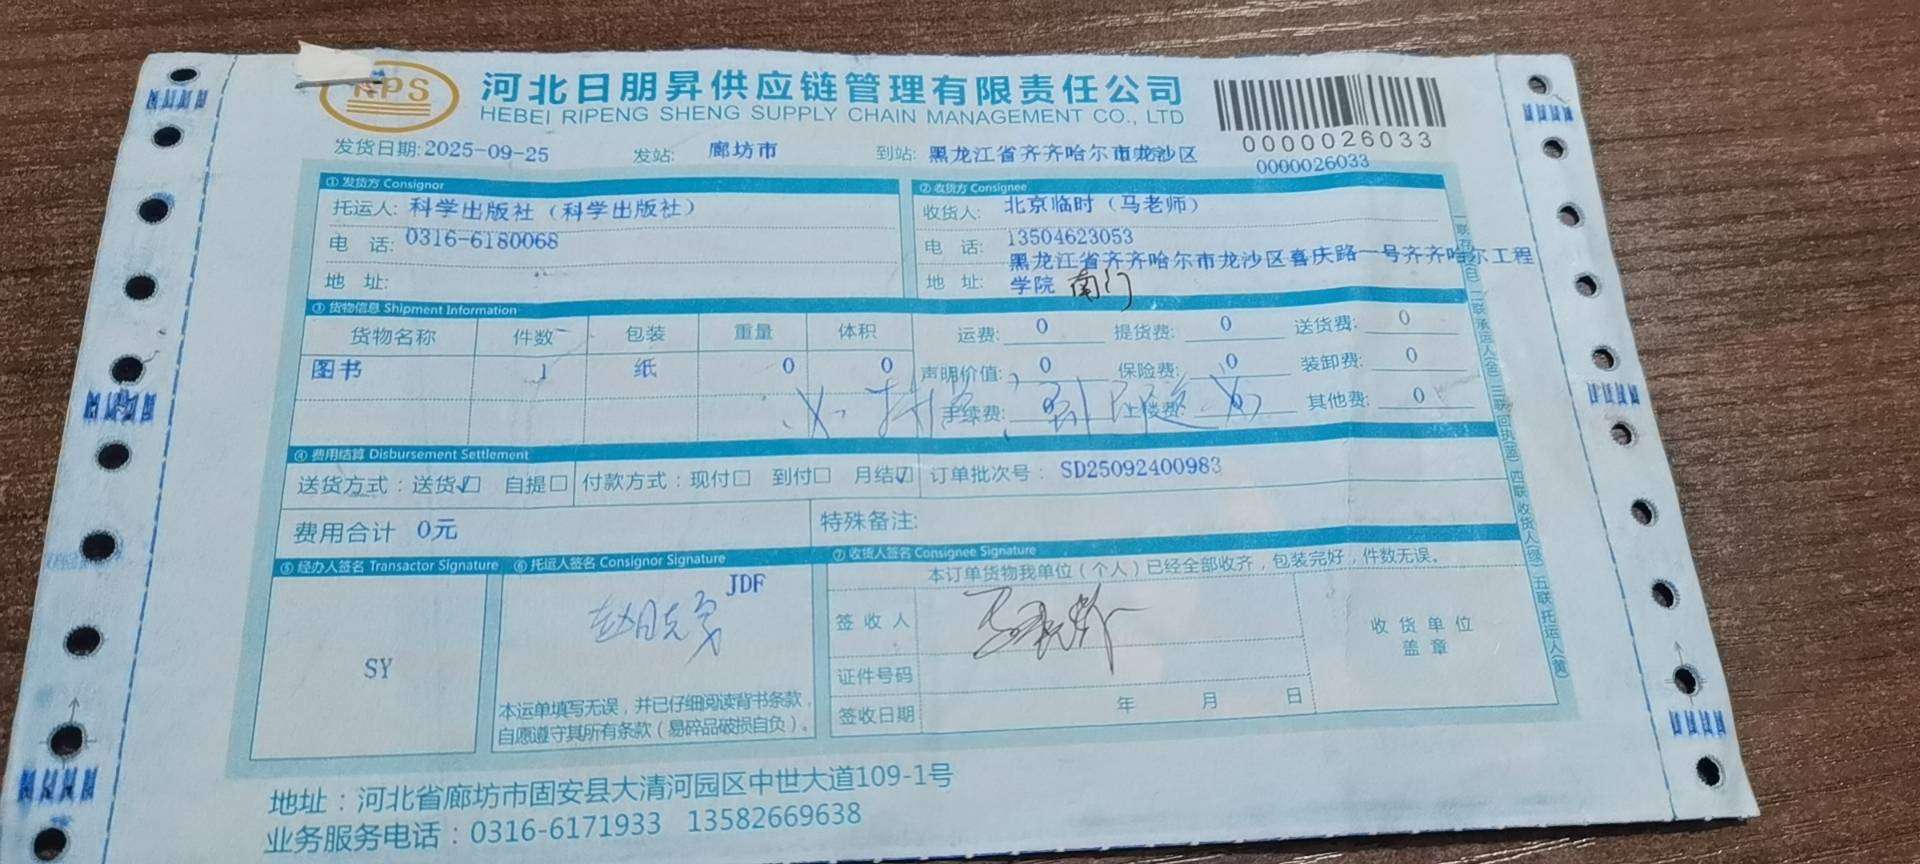 RPS
河北日朋昇供应链管理有限责任公司
HEBEI RIPENG SHENG SUPPLY CHAIN MANAGEMENT CO., LTD
0000026033
0000026033
发货日期:2025-09-25 发站: 廊坊市 到站: 黑龙江省齐齐哈尔市龙沙区
① 发货方 Consignor
托运人: 科学出版社（科学出版社）
电 话: 0316-6180068
地 址:
② 收货方 Consignee
收货人: 北京临时（马老师）
电 话: 13504623053
黑龙江省齐齐哈尔市龙沙区喜庆路一号齐齐哈尔工程
地 址: 学院 南门
③ 货物信息 Shipment Information
货物名称 件数 包装 重量 体积
图书 1 纸 0 0
运费: 0 提货费: 0 送货费: 0
声明价值: 0 保险费: 0 装卸费: 0
手续费: 0 上楼费: 0 其他费: 0
④ 费用结算 Disbursement Settlement
送货方式：送货☑ 自提□ 付款方式：现付□ 到付□ 月结☑ 订单批次号： SD25092400983
费用合计 0元 特殊备注:
⑤ 经办人签名 Transactor Signature
SY
⑥ 托运人签名 Consignor Signature
JDF
本运单填写无误，并已仔细阅读背书条款，
自愿遵守其所有条款（易碎品破损自负）。
⑦ 收货人签名 Consignee Signature
本订单货物我单位（个人）已经全部收齐，包装完好，件数无误。
签收人
证件号码
签收日期 年 月 日
收货单位
盖章
地址：河北省廊坊市固安县大清河园区中世大道109-1号
业务服务电话：0316-6171933 13582669638